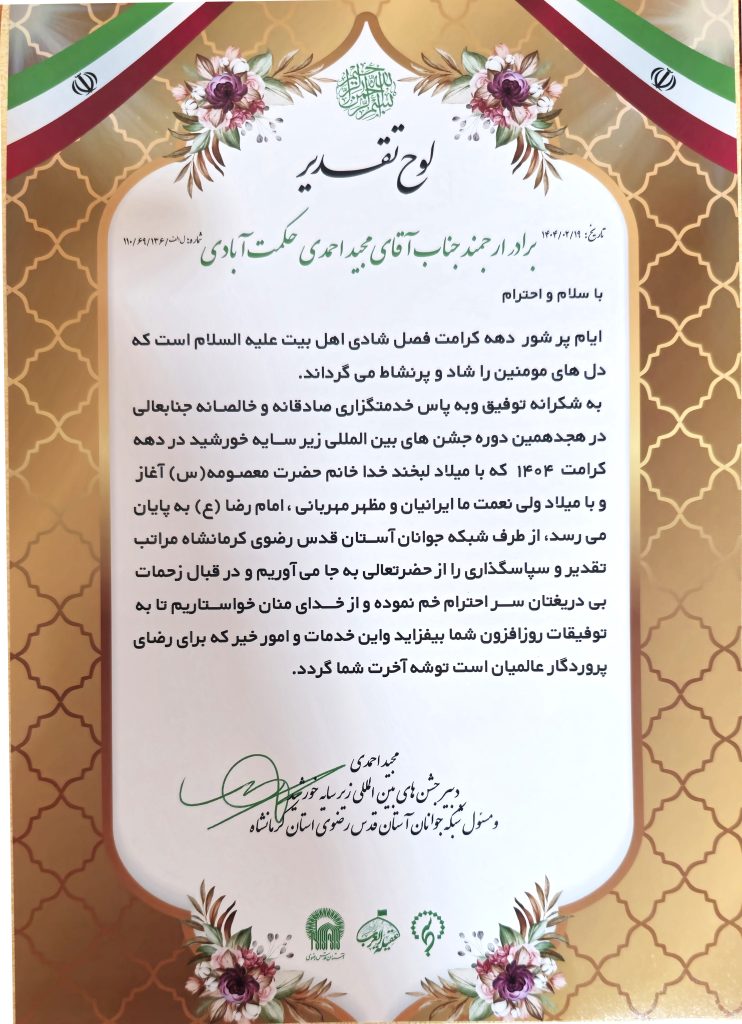 بسم الله الرحمن الرحیم
لوح تقدیر
تاریخ: ۱۴۰۴/۰۲/۱۹
برادر ارجمند جناب آقای مجید احمدی حکمت آبادی
شماره: ل الف/۱۱۰/۶۹/۱۳۶
با سلام و احترام
ایام پر شور دهه کرامت فصل شادی اهل بیت علیه السلام است که
دل های مومنین را شاد و پرنشاط می گرداند.
به شکرانه توفیق وبه پاس خدمتگزاری صادقانه و خالصانه جنابعالی
در هجدهمین دوره جشن های بین المللی زیر سایه خورشید در دهه
کرامت ۱۴۰۴ که با میلاد لبخند خدا خانم حضرت معصومه(س) آغاز
و با میلاد ولی نعمت ما ایرانیان و مظهر مهربانی ، امام رضا (ع) به پایان
می رسد، از طرف شبکه جوانان آستان قدس رضوی کرمانشاه مراتب
تقدیر و سپاسگذاری را از حضرتعالی به جا می آوریم و در قبال زحمات
بی دریغتان سر احترام خم نموده و از خدای منان خواستاریم تا به
توفیقات روزافزون شما بیفزاید واین خدمات و امور خیر که برای رضای
پروردگار عالمیان است توشه آخرت شما گردد.
مجید احمدی
دبیر جشن های بین المللی زیر سایه خورشید
و مسئول شبکه جوانان آستان قدس رضوی استان کرمانشاه
آستان قدس رضوی